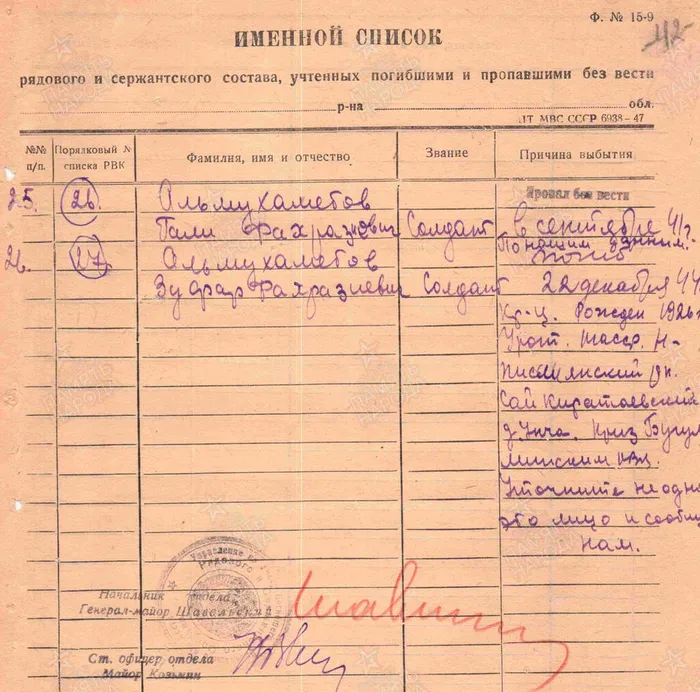 Ф. № 15-9
42-
ИМЕННОЙ СПИСОК
рядового и сержантского состава, учтенных погибшими и пропавшими без вести
р-на обл.
ЛТ МВС СССР 6938-47
№№ п/п. Порядковый № списка РВК Фамилия, имя и отчество Звание Причина выбытия
Пропал без вести
25. 26. Альмухаметов
Гали Фахразиевич Солдант в сентябре 41г.
По нашим данным.
погиб
26. 27. Альмухаметов
Зуфар Фахразиевич Солдант 22 декабря 44
Кр-ц. Рожден 1926г
Урож. Тасср. Н-
Письмянский р-н.
Сай Каратаевский
д. Унча. Приз Бугул
минским РВК.
Уточните не одно
это лицо и сообщи
нам.
Управление
Рядового и
Начальник отдела
Генерал-майор Шавельский
Ст. офицер отдела
Майор Козьмин
ПАМЯТЬ НАРОДА